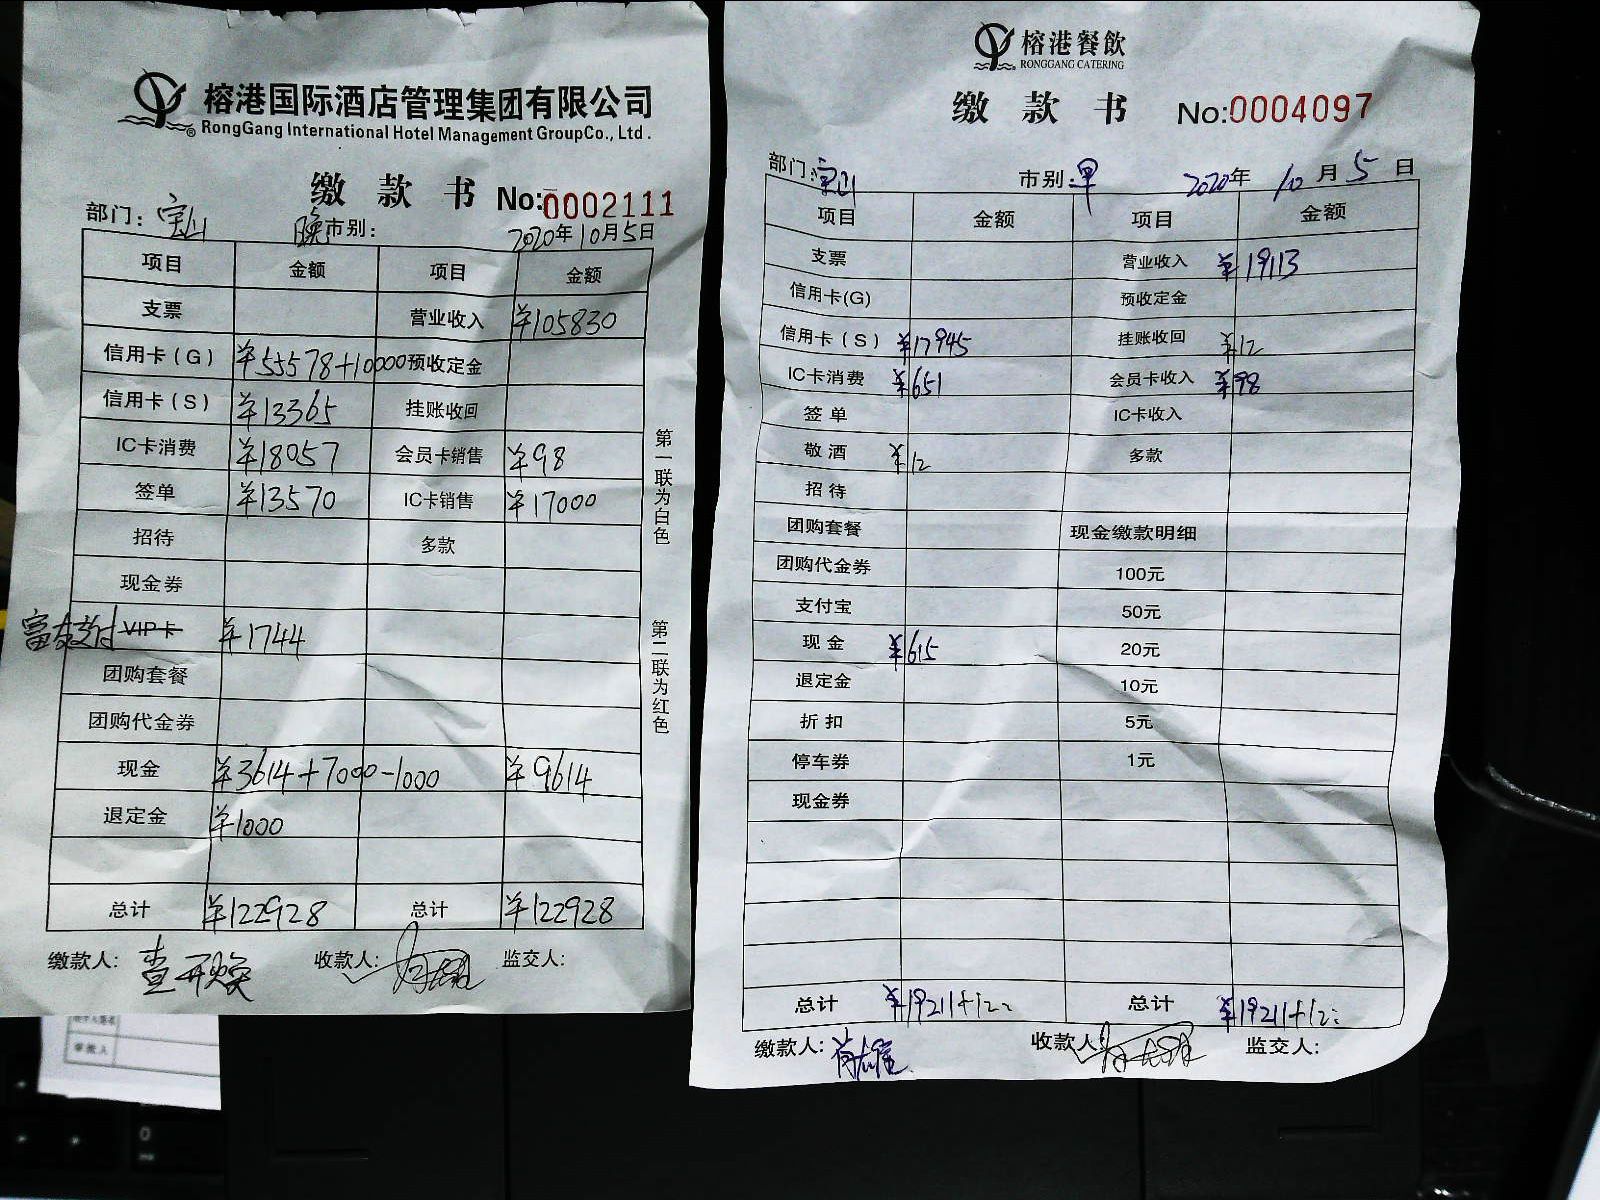 榕港国际酒店管理集团有限公司
RongGang International Hotel Management GroupCo., Ltd.
缴款书 No:0002111
部门：宝山 晚市别： 2020年10月5日
项目 金额 项目 金额
支票 营业收入 ¥105830
信用卡（G） ¥55578+10000 预收定金
信用卡（S） ¥13365 挂账收回
IC卡消费 ¥18057 会员卡销售 ¥98
签单 ¥13570 IC卡销售 ¥17000
招待 多款
现金券
富友支付 VIP卡 ¥1744
团购套餐
团购代金券
现金 ¥3614+7000-1000 ¥9614
退定金 ¥1000
总计 ¥122928 总计 ¥122928
缴款人： 收款人： 监交人：
第一联为白色
第二联为红色
榕港餐飲
RONGGANG CATERING
缴款书 No:0004097
部门：宝山 市别：早 2020年10月5日
项目 金额 项目 金额
支票 营业收入 ¥19113
信用卡(G) 预收定金
信用卡（S） ¥17945 挂账收回 ¥12
IC卡消费 ¥651 会员卡收入 ¥98
签单 IC卡收入
敬酒 ¥12 多款
招待
团购套餐 现金缴款明细
团购代金券 100元
支付宝 50元
现金 ¥615 20元
退定金 10元
折扣 5元
停车券 1元
现金券
总计 ¥19211+12= 总计 ¥19211+12=
缴款人： 收款人： 监交人：
审批人